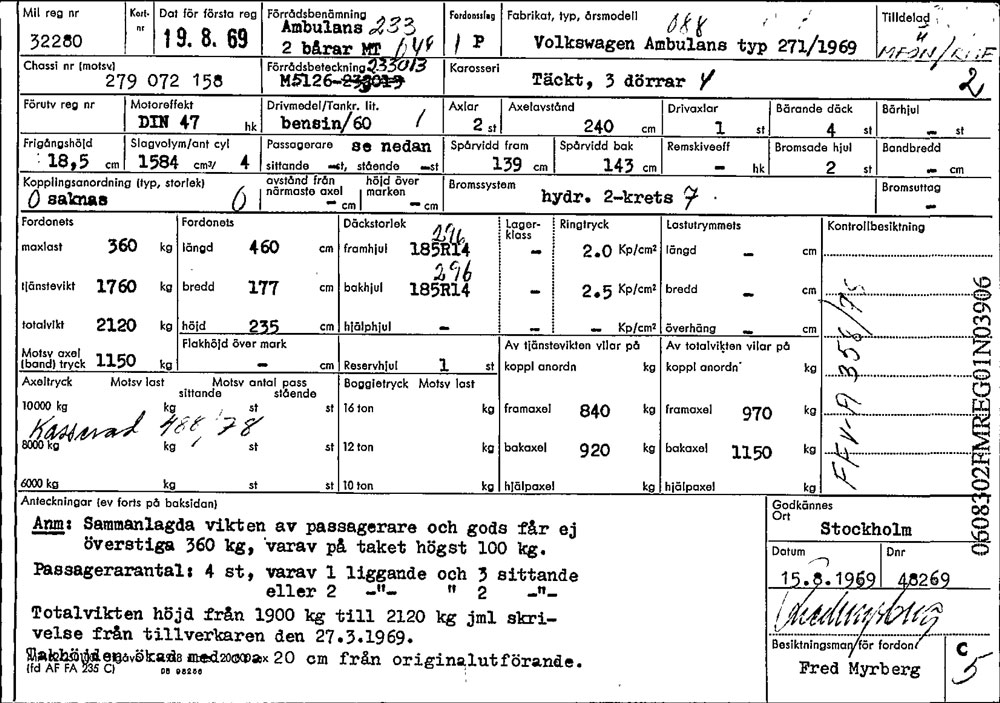 Mil reg nr
32280
Kort-
nr
Dat för första reg
19. 8. 69
Förrådsbenämning
Ambulans 233
2 bårar MT
Fordonsslag
1 P
Fabrikat, typ, årsmodell
088
Volkswagen Ambulans typ 271/1969
Tilldelad
Chassi nr (motsv)
279 072 158
Förrådsbeteckning 233013
M5126-233013
Karosseri
Täckt, 3 dörrar
2
Förutv reg nr
Motoreffekt
DIN 47 hk
Drivmedel/Tankr. lit.
bensin/60 /
Axlar
2 st
Axelavstånd
240 cm
Drivaxlar
1 st
Bärande däck
4 st
Bärhjul
- st
Frigångshöjd
18,5 cm
Slagvolym/ant cyl
1584 cm³/ 4
Passagerare se nedan
sittande -st, stående -st
Spårvidd fram
139 cm
Spårvidd bak
143 cm
Remskiveeff
- hk
Bromsade hjul
2 st
Bandbredd
- cm
Kopplingsanordning (typ, storlek)
0 saknas 0
avstånd från
närmaste axel
- cm
höjd över
marken
- cm
Bromssystem
hydr. 2-krets 7
Bromsuttag
-
Fordonets
maxlast 360 kg
tjänstevikt 1760 kg
totalvikt 2120 kg
Motsv axel
(band) tryck 1150 kg
Fordonets
längd 460 cm
bredd 177 cm
höjd 235 cm
Flakhöjd över mark
- cm
Däckstorlek
296
framhjul 185R14
296
bakhjul 185R14
hjälphjul -
Reservhjul 1 st
Lager-
klass
-
-
-
Ringtryck
2.0 Kp/cm²
2.5 Kp/cm²
- Kp/cm²
Lastutrymmets
längd - cm
bredd - cm
överhäng - cm
Kontrollbesiktning
FFV-A 358/75
Axeltryck Motsv last Motsv antal pass
sittande stående
10000 kg kg st st
Kasserad 488/78
8000 kg kg st st
6000 kg kg st st
Boggietryck Motsv last
16 ton kg
12 ton kg
10 ton kg
Av tjänstevikten vilar på
koppl anordn kg
framaxel 840 kg
bakaxel 920 kg
hjälpaxel kg
Av totalvikten vilar på
koppl anordn kg
framaxel 970 kg
bakaxel 1150 kg
hjälpaxel kg
0608302FMREG01N03906
Anteckningar (ev forts på baksidan)
Anm: Sammanlagda vikten av passagerare och gods får ej
överstiga 360 kg, varav på taket högst 100 kg.
Passagerarantal: 4 st, varav 1 liggande och 3 sittande
eller 2 -"- " 2 -"-
Totalvikten höjd från 1900 kg till 2120 kg jml skri-
velse från tillverkaren den 27.3.1969.
Takhöjden ökad med cca 20 cm från originalutförande.
(fd AF FA 235 C)
Godkännes
Ort
Stockholm
Datum
15.8.1969
Dnr
48269
Besiktningsman för fordon
Fred Myrberg
C
5